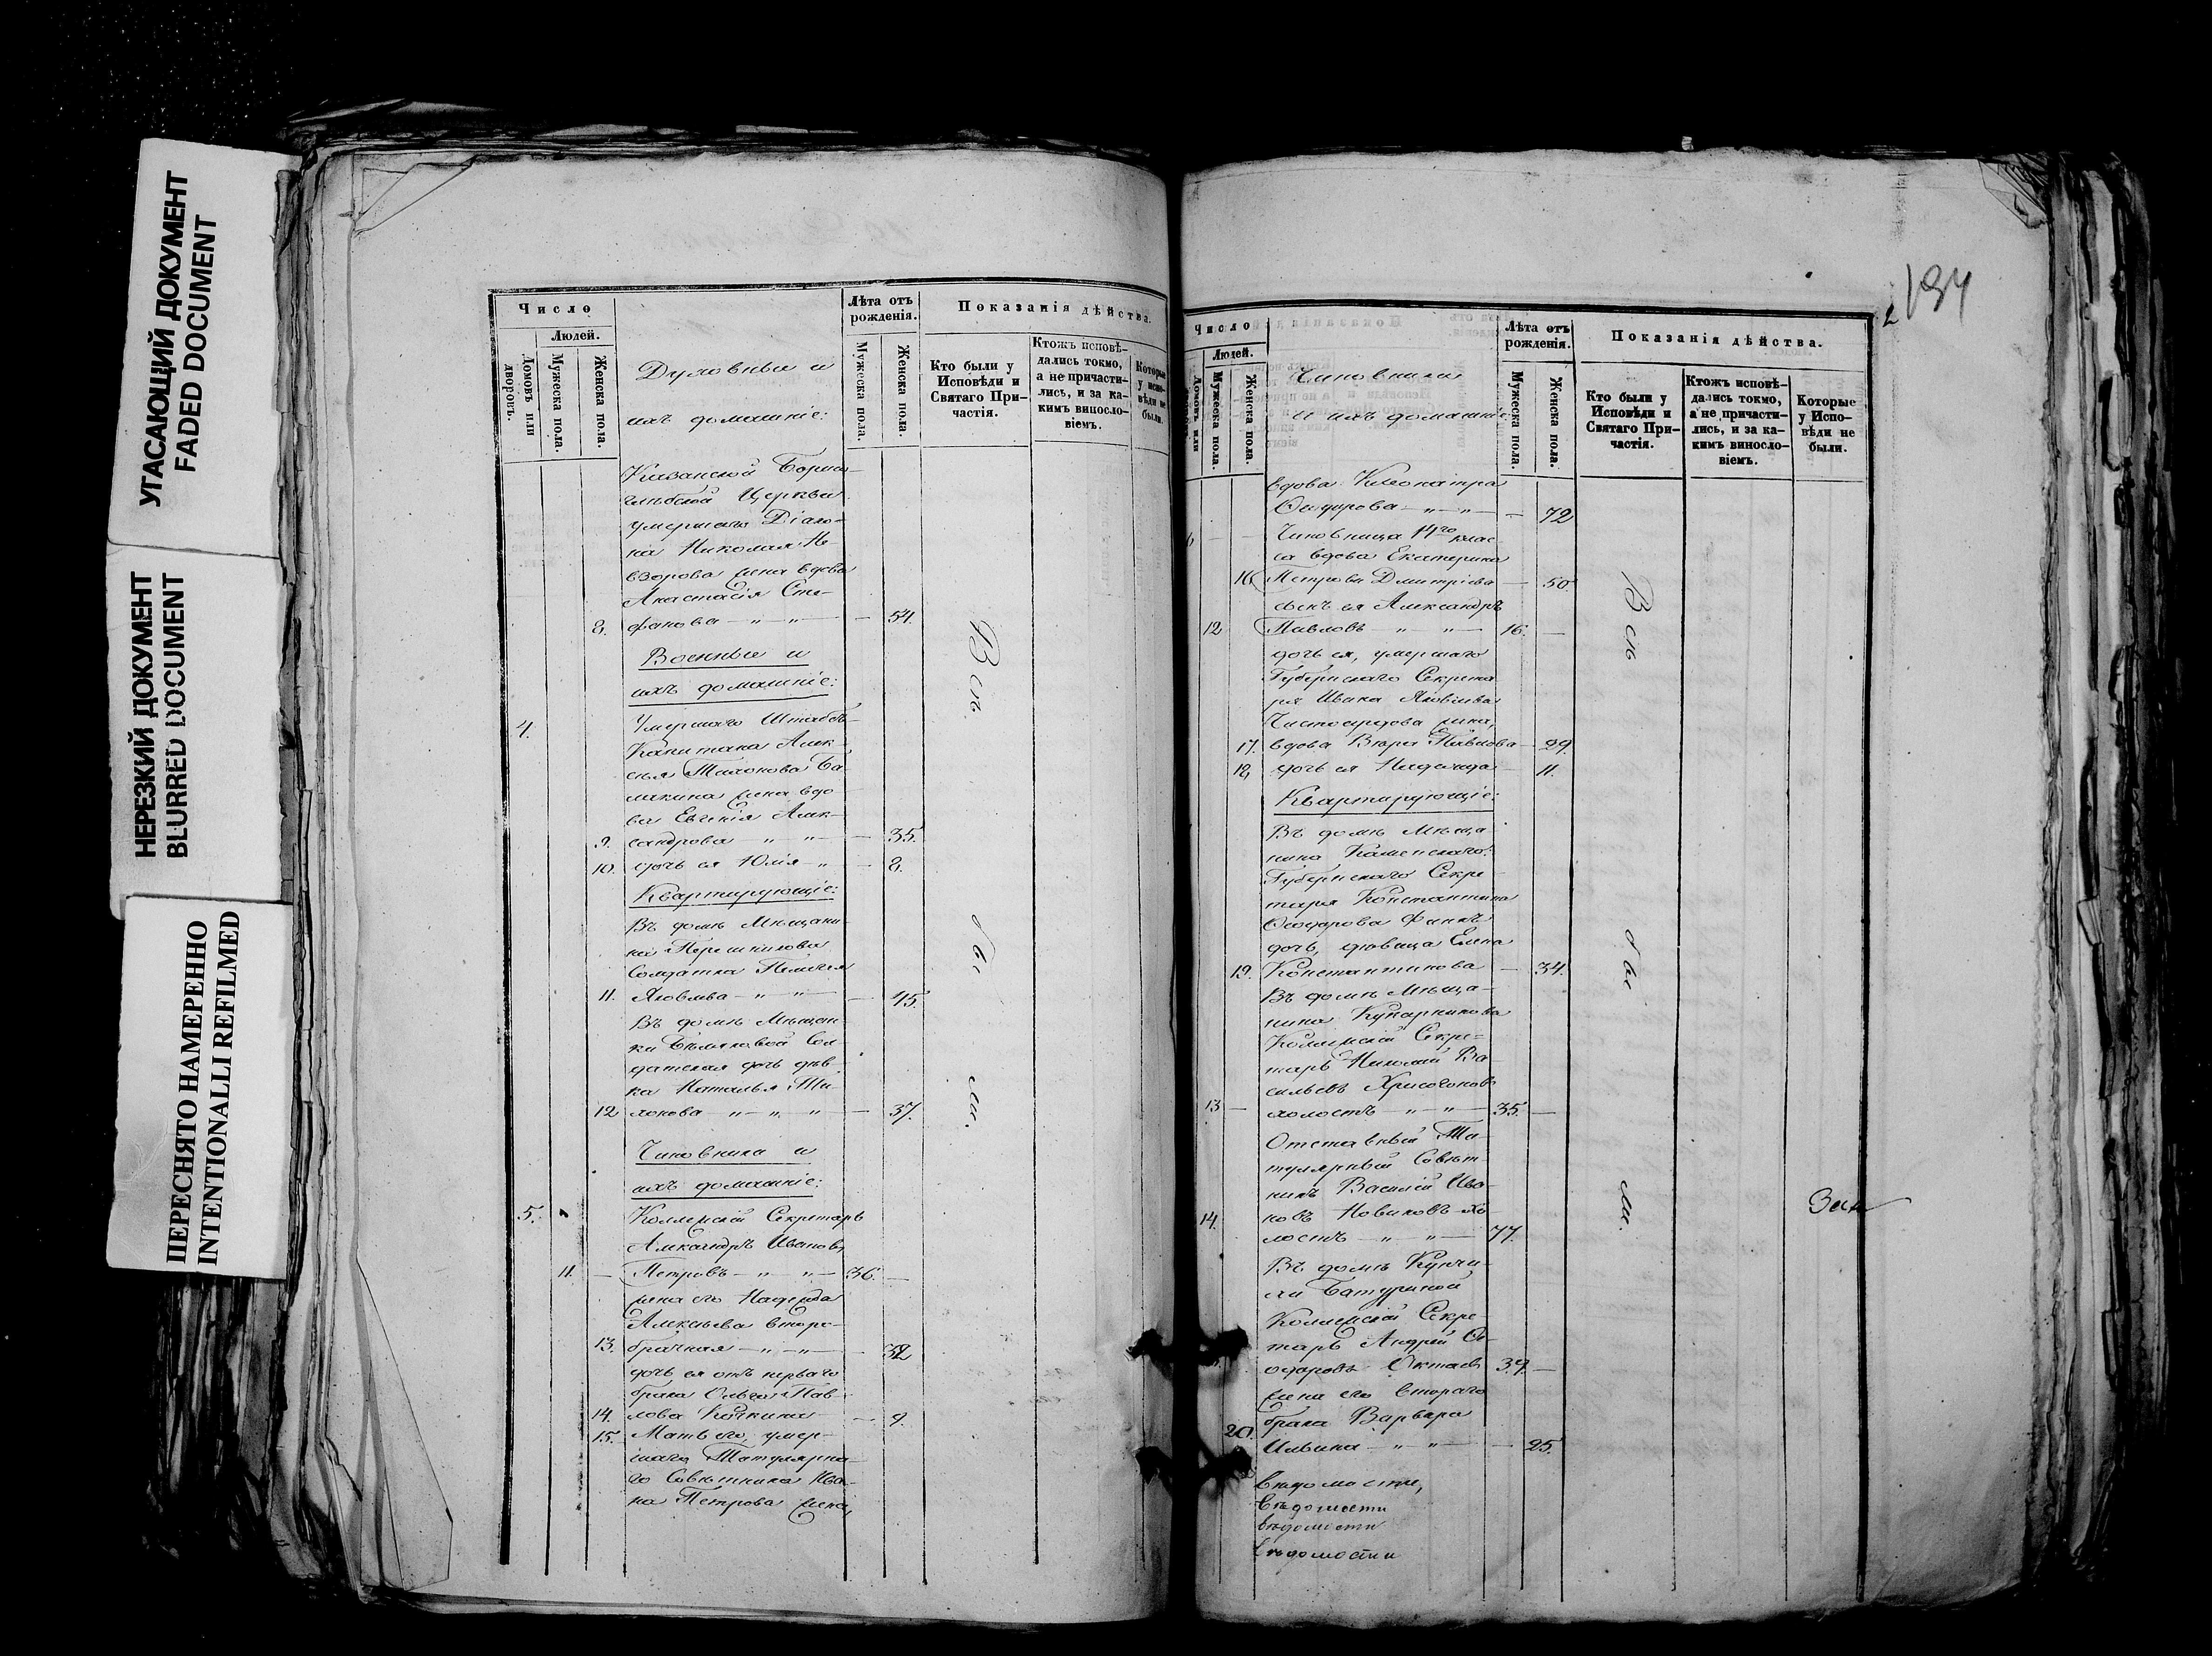 УГАСАЮЩИЙ ДОКУМЕНТ
FADED DOCUMENT
НЕРЕЗКИЙ ДОКУМЕНТ
BLURRED DOCUMENT
ПЕРЕСНЯТО НАМЕРЕННО
INTENTIONALLI REFILMED
Число
Людей.
Домовъ или дворовъ.
Мужеска пола.
Женска пола.
Духовные и
ихъ домашніе:
Лѣта отъ рожденія.
Мужеска пола.
Женска пола.
Показанія дѣйства.
Кто были у Исповѣди и Святаго Причастія.
Ктожъ исповѣдались токмо, а не причастились, и за какимъ винословіемъ.
Которые у испо-вѣди не были.
Казанской Борисо-
глѣбской Церкви
умершаго Діако-
на Николая Не-
взорова жена вдова
Анастасія Сте-
8. фанова — " — " — 54.
Военные и
ихъ домашніе:
4. Умершаго Штабсъ-
Капитана Алек-
сѣя Тихонова Ба-
жена вдо-
ва Евгенія Алек-
9. сандрова " " — 35.
10. дочь ея Юлія — " — 8.
Квартирующіе:
Въ домѣ Мѣщани-
на
Солдатка Пелагея
11. Яковлева — " — " — 45.
Въ домѣ Мѣщан-
ки Бѣляковой Сол-
датская дочь дѣв-
ка Наталья Ти-
12 хонова — " — " — 37.
Чиновники и
ихъ домашніе:
5. Коллежскій Секретарь
Александръ Ивановъ
11. — Петровъ — " — " — 36. —
жена его Надежда
Алексѣева второ-
13. брачная — " — " — 32
дочь ея отъ перваго
брака Ольга Пав-
14. лова — 9.
15. Мать его, умер-
шаго Титулярна-
го Совѣтника Ива-
на Петрова жена,
Всѣ
бы
ли.
2 134
Число
Людей.
Домовъ или
Мужеска пола.
Женска пола.
Чиновники
и ихъ домашніе:
Лѣта отъ рожденія.
Мужеска пола.
Женска пола.
Показанія дѣйства.
Кто были у Исповѣди и Святаго Причастія.
Ктожъ исповѣдались токмо, а не причастились, и за какимъ винословіемъ.
Которые у Испо-вѣди не были.
вдова Клеопатра
Ѳедорова — " — " — 72
6 — — Чиновница 14го клас-
са вдова Екатерина
16 Петрова Дмитріева — 50.
сынъ ея Александръ
12 Павловъ — " — 16. —
дочь ея, умершаго
Губернскаго Секрета-
ря Ивана Яковлева
Чистосердова жена,
17. вдова Вѣра Павлова — 29.
18 дочь ея Надежда — 11.
Квартирующіе:
Въ домѣ Мѣща-
нина Каменскаго:
Губернскаго Секре-
таря Константина
Ѳеодорова
дочь, дѣвица Елена
19. Константинова — 34.
Въ домѣ Мѣща-
нина
Коллежскій Секре-
тарь Николай Ва-
сильевъ Хрисогоновъ
13 — холостъ — " — " — 35. —
Отставный Ти-
тулярный Совѣт-
никъ Василій Ива-
14. новъ Новиковъ хо-
лостъ — " — " — 77.
Въ домѣ Купчи-
хи Батуриной
Коллежскій Секре-
тарь Андрей Ѳе-
одоровъ 39. —
жена его втораго
брака Варвара
20. Ильина — " — " — 25.
вѣдомости,
вѣдомости
вѣдомости
вѣдомости
Всѣ
бы
ли.